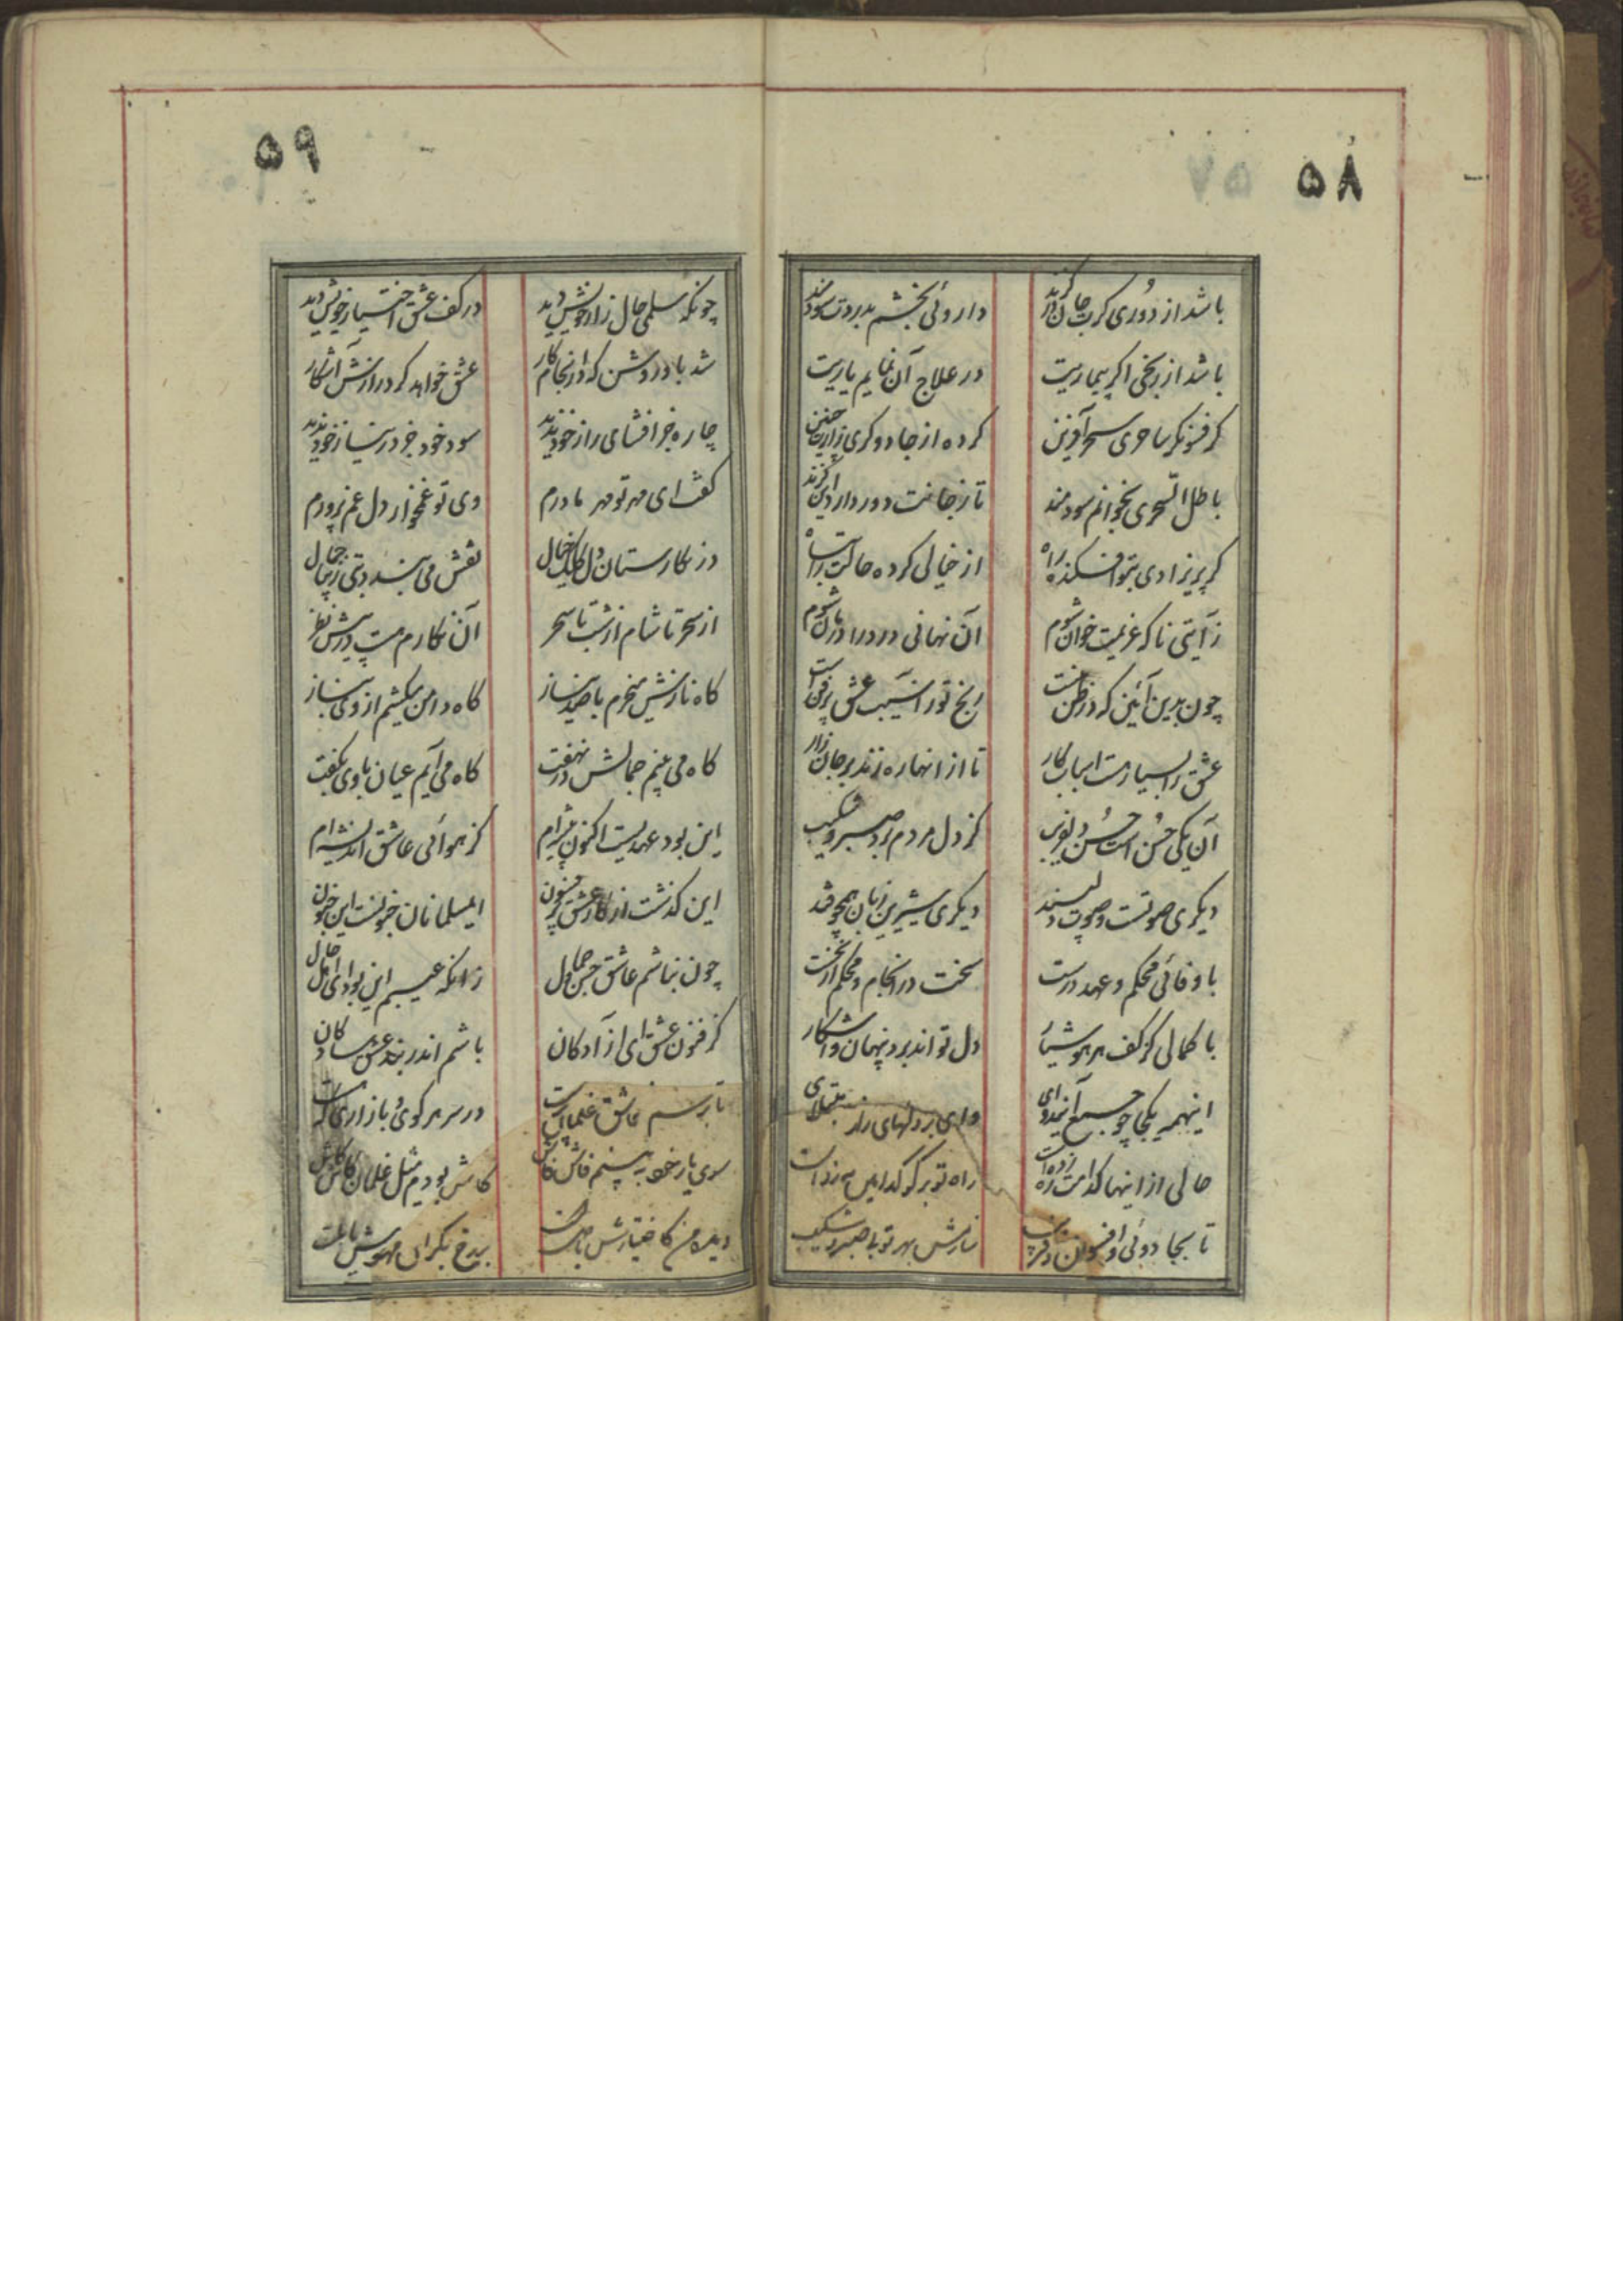 ۵۸
باشد از دوری گرت جان را گزند
داروئی بخشم بدردت سودمند
باشد از رنجی اگر بیماریت
در علاج آن نمایم یاریت
گر فسونگر ساحری سحر آفرین
کرده از جادوگری زارت چنین
باطل السحری بخوانم سودمند
تا ز جانت دور دارد این گزند
گر پریزادی بتو افکنده راه
از خیالی کرده حالت را تباه
زآیتی ناگه عزیمت خوان شوم
آن نهانی درد را درمان شوم
چون بدین آئین که در ظن منست
رنج تو را آسیب عشق پرفن است
عشق را بسیار هست اسباب کار
تا از آنها ره زند بر جان زار
آن یکی حسن است حسن دلفریب
کز دل مردم برد صبر و شکیب
دیگری صوتست و صوت دلپسند
دیگری شیرین زبان همچو قند
با وفائی محکم و عهد درست
سخت در انجام و محکم از نخست
با کمالی کز کف هر هوشیار
دل تواند برد پنهان و آشکار
اینهمه یکجا چو جمع آید وای
وای بر دلهای زار مبتلای
حالی از اینها کدامت زد راه
راه تو برگو کدامین
تا بجادوئی و افسون و فریب
سازمش بهر تو با صبر و شکیب
۵۹
چونکه سلمی حال زار خویش دید
در کف عشق اختیار خویش دید
شد باو روشن که در انجام کار
عشق خواهد کرد رازش آشکار
چاره جز افشای راز خود ندید
سود خود جز در نیاز خود ندید
گفت ای مهر تو مهر مادرم
وی تو غمخوار دل غم پرورم
در نگارستان دل کلک خیال
نقش می بندد بتی زیبا جمال
از سحر تا شام از شب تا سحر
آن نگارم هست در پیش نظر
گاه نازش میخرم با صد نیاز
گاه دامن میکشم از وی بناز
گاه می بینم جمالش در نهفت
گاه می آیم عیان با وی بگفت
این بود عهدیست اکنون پیشه ام
کز هوائی عاشق اندیشه ام
این گذشت از کار عشق پر فسون
ای مسلمانان جنونست این جنون
چون نباشم عاشق حسن و جمال
زانکه عیبم این بود ای اهل حال
گر فزون عشق ای آزادگان
باشم اندر بند عشق سادگان
تا برسم عاشق غلمان
در سر هر کوی و بازاری که هست
سوی یار خود ببینم فاش فاش
کاش بودم مثل غلمان کاش کاش